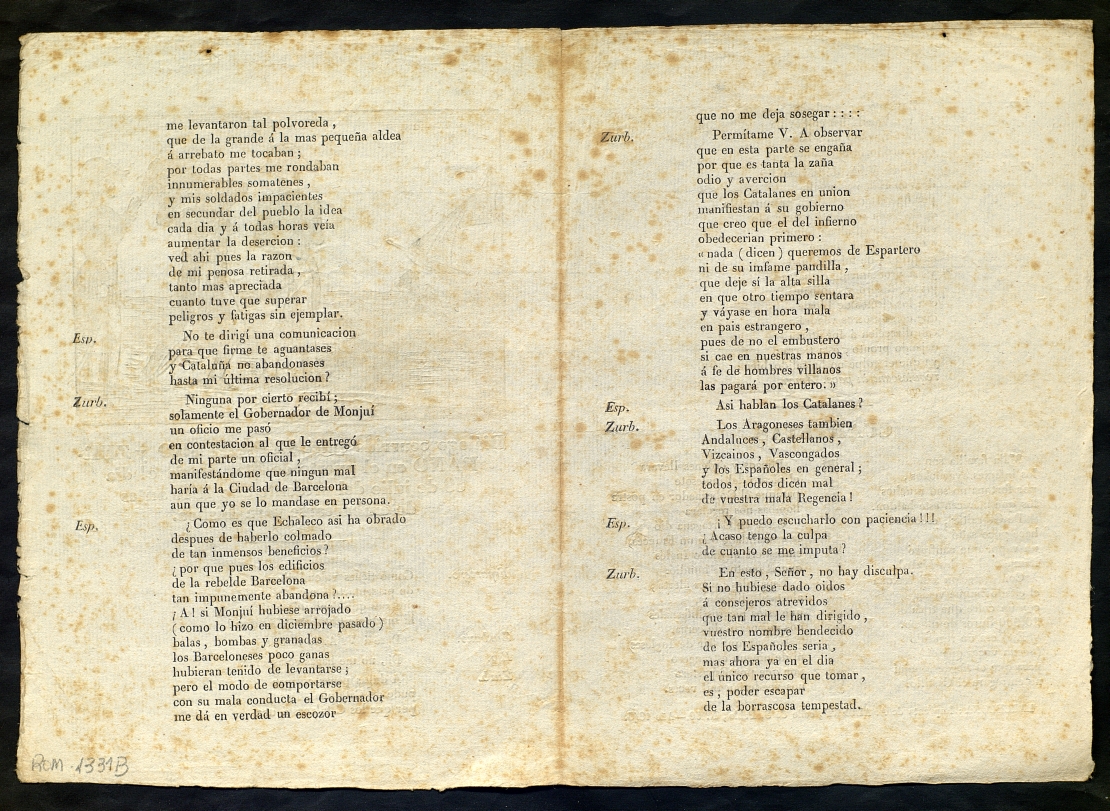 me levantaron tal polvoreda ,
que de la grande á la mas pequeña aldea
á arrebato me tocaban ;
por todas partes me rondaban
innumerables somatenes ,
y mis soldados impacientes
en secundar del pueblo la idea
cada dia y á todas horas veia
aumentar la desercion :
ved ahi pues la razon
de mi penosa retirada ,
tanto mas apreciada
cuanto tuve que superar
peligros y fatigas sin ejemplar.
Esp. No te dirigí una comunicacion
para que firme te aguantases
y Cataluña no abandonases
hasta mi última resolucion ?
Zurb. Ninguna por cierto recibí ;
solamente el Gobernador de Monjuí
un oficio me pasó
en contestacion al que le entregó
de mi parte un oficial ,
manifestándome que ningun mal
haría á la Ciudad de Barcelona
aun que yo se lo mandase en persona.
Esp. ¿ Como es que Echaleco asi ha obrado
despues de haberlo colmado
de tan inmensos beneficios ?
¿ por que pues los edificios
de la rebelde Barcelona
tan impunemente abandona ?....
¡ A ! si Monjuí hubiese arrojado
( como lo hizo en diciembre pasado )
balas , bombas y granadas
los Barceloneses poco ganas
hubieran tenido de levantarse ;
pero el modo de comportarse
con su mala conducta el Gobernador
me dá en verdad un escozor
RCM. 1331B
que no me deja sosegar : : : :
Zurb. Permítame V. A observar
que en esta parte se engaña
por que es tanta la zaña
odio y avercion
que los Catalanes en union
manifiestan á su gobierno
que creo que el del infierno
obedecerian primero :
« nada ( dicen ) queremos de Espartero
ni de su imfame pandilla ,
que deje sí la alta silla
en que otro tiempo sentara
y váyase en hora mala
en pais estrangero ,
pues de no el embustero
si cae en nuestras manos
á fe de hombres villanos
las pagará por entero. »
Esp. Asi hablan los Catalanes ?
Zurb. Los Aragoneses tambien
Andaluces , Castellanos ,
Vizcainos , Vascongados
y los Españoles en general ;
todos , todos dicen mal
de vuestra mala Regencia !
Esp. ¡ Y puedo escucharlo con paciencia ! ! !
¿ Acaso tengo la culpa
de cuanto se me imputa ?
Zurb. En esto , Señor , no hay disculpa.
Si no hubiese dado oidos
á consejeros atrevidos
que tan mal le han dirigido ,
vuestro nombre bendecido
de los Españoles seria ,
mas ahora ya en el dia
el único recurso que tomar ,
es , poder escapar
de la borrascosa tempestad.